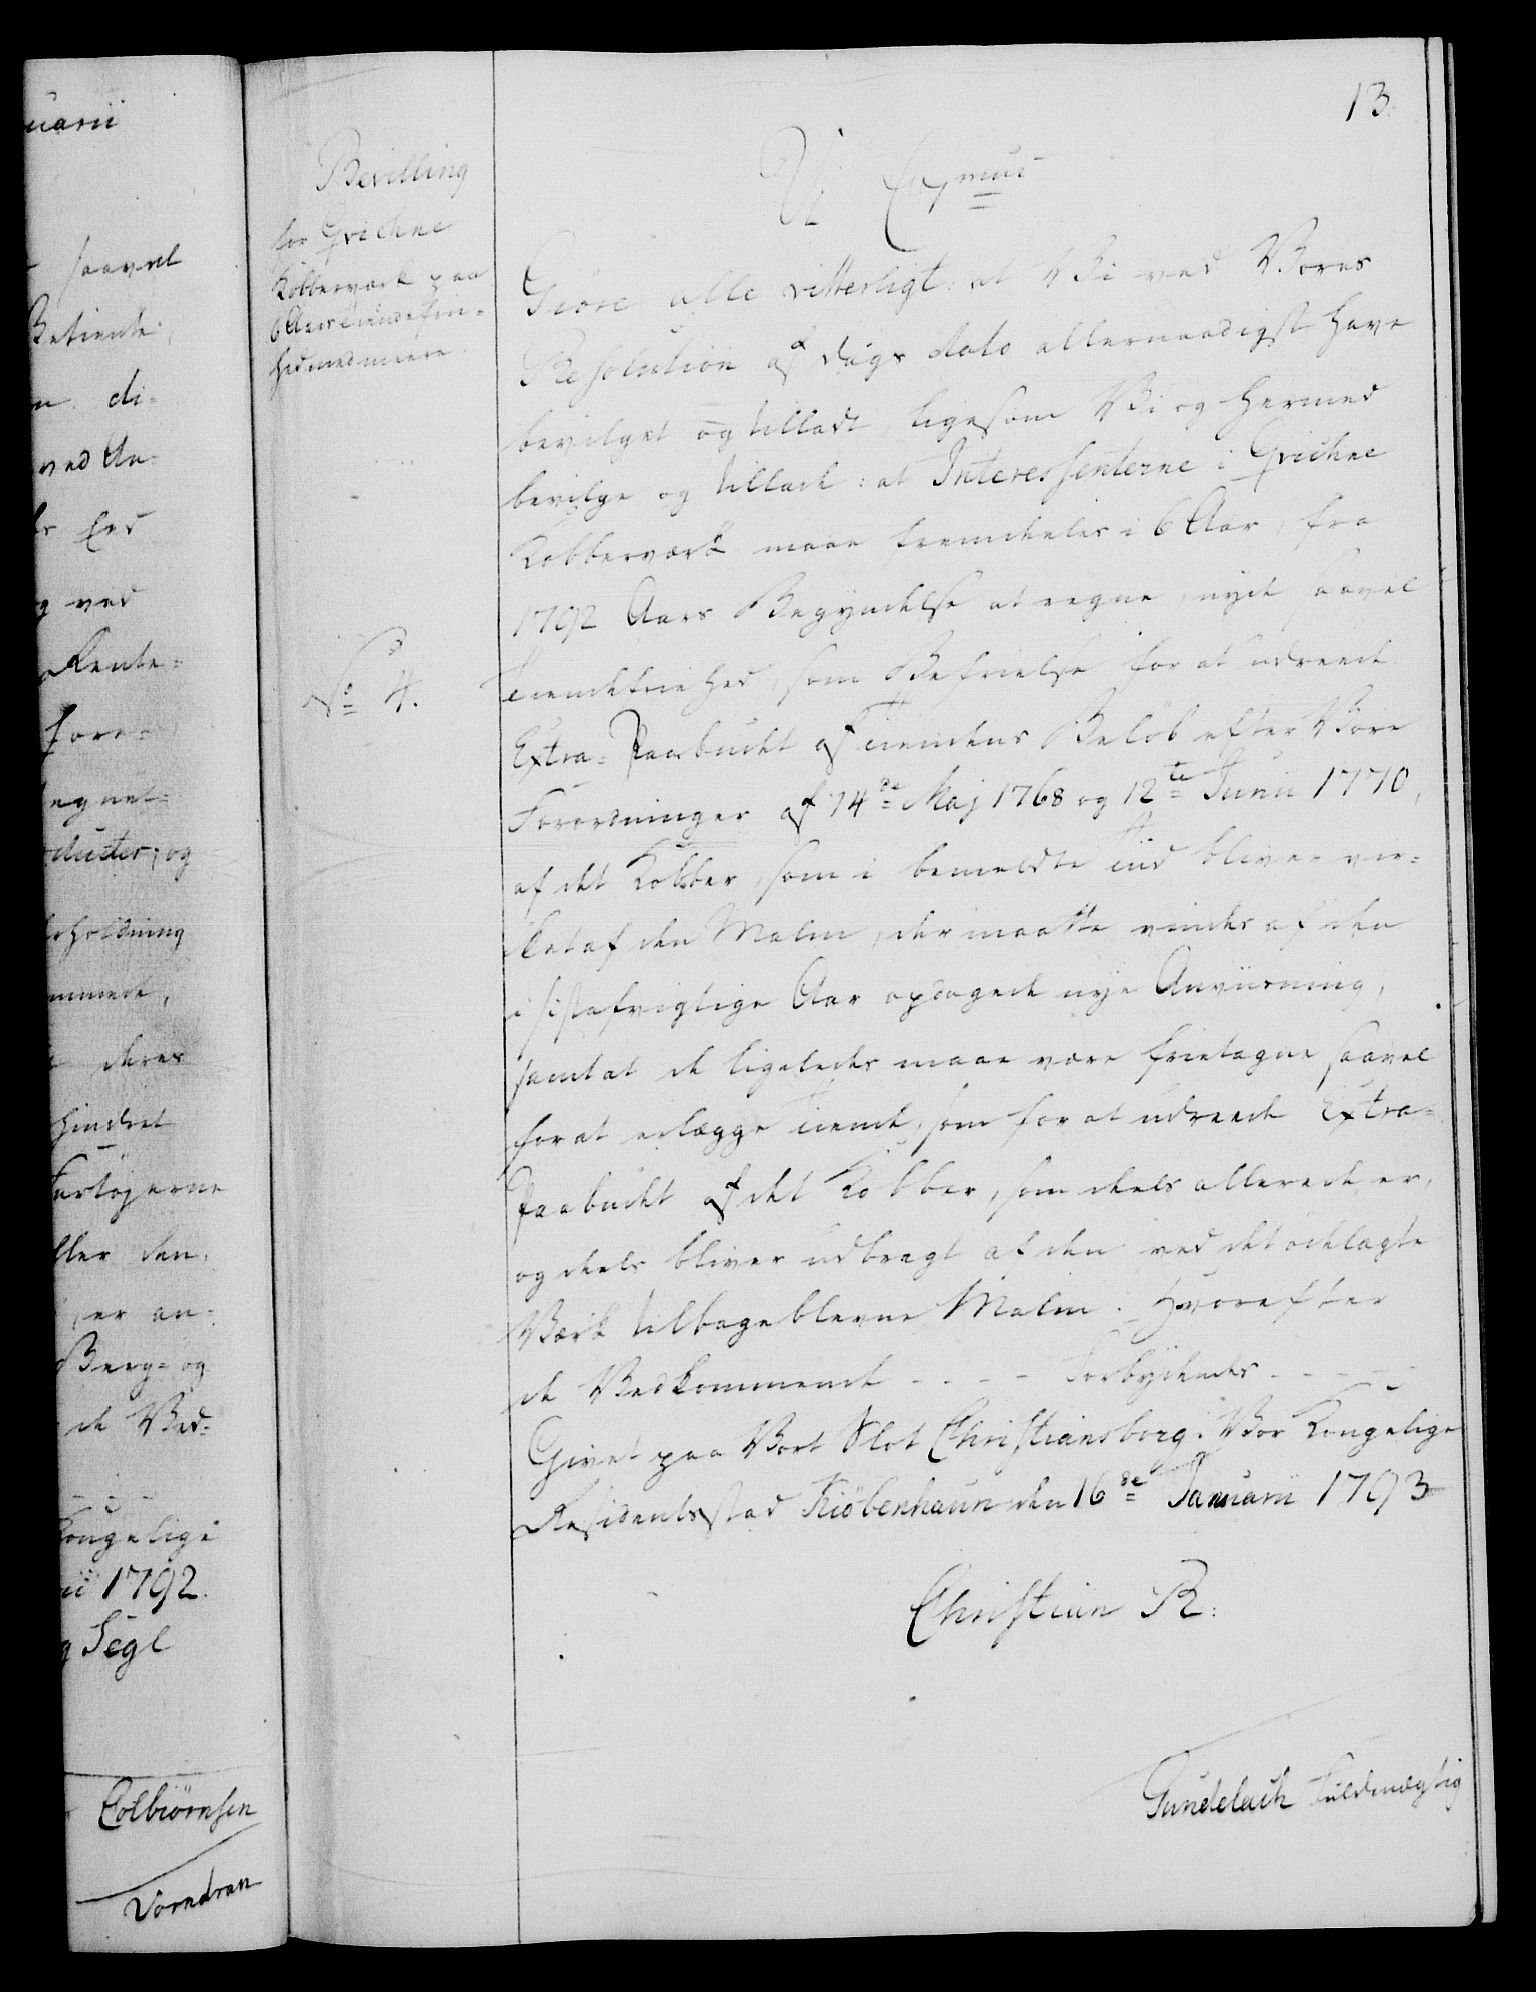 uarii
saavel
Betiente,
n di-
ved An-
Eed
ved
Rente-
fore-
egnet-
ducter, og
erholdning
mmede,
deres
hindret
Fartøjerne
ller den,
er an-
Berg- og
de Ved-
Kongelige
ii 1792.
Segl
Colbiörnsen
Vorndran
13.
Bevilling
for Qvichne
Kobberværk paa
6 Aars tiendefri-
hed med meere.
No 4.
V. C. 7mus
Giöre alle vitterligt: at Vi ved Vores
Resolution af Dags dato allernaadigst have
bevilget og tilladt, ligesom Vi og hermed
bevilge og tillade: at Interessenterne i Qvichne
Kobberværk maae fremdeles i 6 Aar, fra
1792 Aars Begyndelse at regne, nyde saavel
tiendefriehed, som Befrielse for at udreede
Extra-Paabudt af tiendens Beløb efter Vore
Forordninger af 14de Maj 1768 og 12te Junii 1770,
af det Kobber, som i bemeldte tiid bliver vir-
ket af den Malm, der maatte vindes af den
i sistafvigte Aar opdagede nye Anviisning,
samt at de ligeledes maae være frietagne saavel
for at erlægge tiende, som for at udreede Extra-
Paabudt af det Kobber, som deels allerede er,
og deels bliver udbragt af den ved det ödelagte
Værk tilbageblevne Malm. Hvorefter
de Vedkommende - - - - Forbydendes - - - -
Givet paa Vort Slot Christiansborg i Vor Kongelige
Residentsstad Kiöbenhaun den 16de Januarii 1793
Christian R:
Gundelach Fuldmægtig